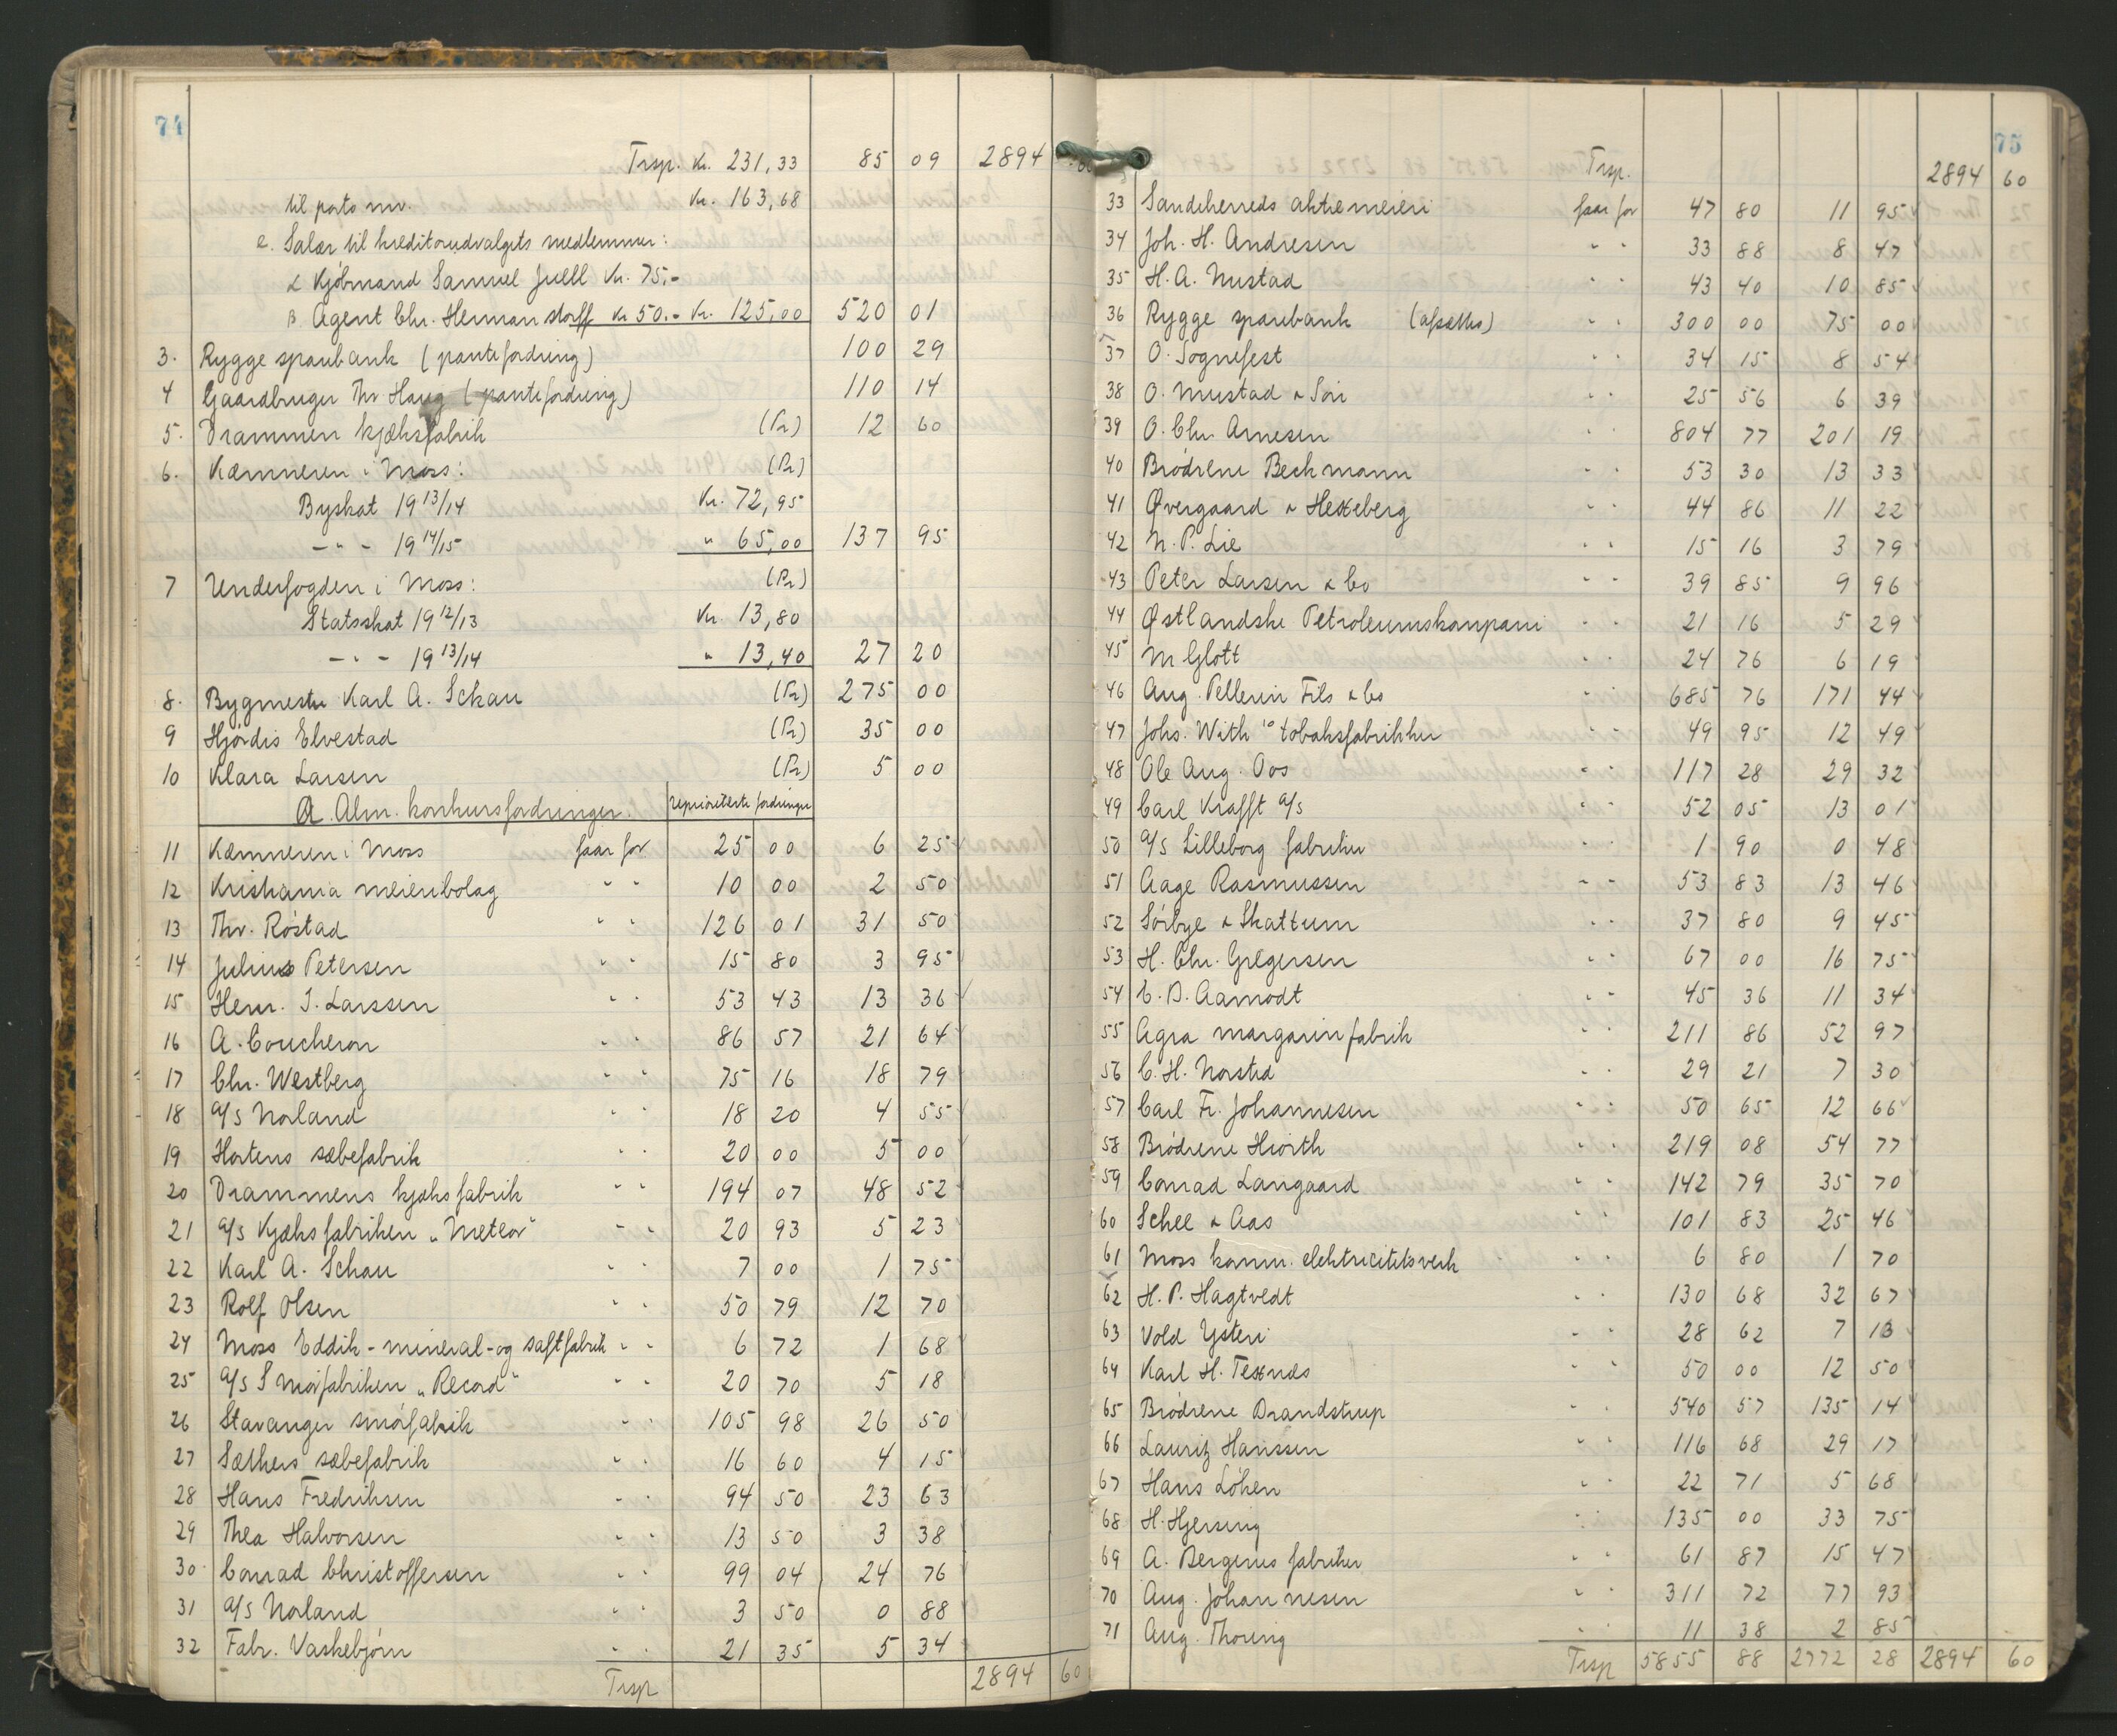 74
Trsp. Kr. 231,33 85 09 2894
til porto mv. Kr. 163,68
e. Salær til kreditorudvalgets medlemmer:
α Kjøbmand Samuel Juell Kr. 75,-
β Agent Chr. Hermanstorff Kr 50.- Kr. 125,00 520 01
3. Rygge sparebank (pantefordring) 100 29
4 Gaardbruger Thv Haug (pantefordring) 110 14
5. Drammen kjæksfabrik (Pr) 12 60
6. Kæmneren i Moss: (Pr)
Byskat 19 13/14 Kr. 72,95
-"- 19 14/15 " 65,00 137 95
7 Underfogden i Moss: (Pr)
Statsskat 19 12/13 Kr. 13,80
-"- 19 13/14 " 13,40 27 20
8. Bygmester Karl A. Schau (Pr) 275 00
9 Hjørdis Elvestad (Pr) 35 00
10 Klara Larsen (Pr) 5 00
A. Alm. konkursfordringer. uprioriterte fordringer
11 Kæmneren i Moss faar for 25 00 6 25
12 Kristiania meieribolag " " 10 00 2 50
13 Thv. Røstad " " 126 01 31 50
14 Julius Petersen " " 15 80 3 95
15 Henr. J. Larssen " " 53 43 13 36
16 A. Coucheron " " 86 57 21 64
17 Chr. Westberg " " 75 16 18 79
18 a/s Norland " " 18 20 4 55
19 Hortens sæbefabrik " " 20 00 5 00
20 Drammens kjæksfabrik " " 194 07 48 52
21 a/s Kjæksfabriken "Meteor" " " 20 93 5 23
22 Karl A. Schau " " 7 00 1 75
23 Rolf Olsen " " 50 79 12 70
24 Moss Eddik-mineral-og saftfabrik " " 6 72 1 68
25 a/s Smørfabriken "Record" " " 20 70 5 18
26 Stavanger smørfabrik " " 105 98 26 50
27 Sæthers sæbefabrik " " 16 60 4 15
28 Hans Fredriksen " " 94 50 23 63
29 Thea Halvorsen " " 13 50 3 38
30 Conrad Christoffersen " " 99 04 24 76
31 a/s Norland " " 3 50 0 88
32 Fabr. Vaskebjørn " " 21 35 5 34
Trsp 2894 60
75
Trsp. 2894 60
33 Sandeherreds aktiemeieri faar for 47 80 11 95
34 Joh. H. Andresen " " 33 88 8 47
35 H. A. Nustad " " 43 40 10 85
36 Rygge sparebank (afsættes) " " 300 00 75 00
37 O. Sognefest " " 34 15 8 54
38 O. Mustad & Søn " " 25 56 6 39
39 O. Chr. Arnesen " " 804 77 201 19
40 Brødrene Beckmann " " 53 30 13 33
41 Øvergaard & Hexeberg " " 44 86 11 22
42 N. P. Lie " " 15 16 3 79
43 Peter Larsen & Co " " 39 85 9 96
44 Østlandske Petroleumskompani " " 21 16 5 29
45 M Glott " " 24 76 6 19
46 Aug. Pellerin Fils & Co " " 685 76 171 44
47 Johs. With's tobaksfabrikker " " 49 95 12 49
48 Ole Aug. Oos " " 117 28 29 32
49 Carl Krafft a/s " " 52 05 13 01
50 a/s Lilleborg fabriker " " 1 90 0 48
51 Aage Rasmussen " " 53 83 13 46
52 Sørbye & Skattum " " 37 80 9 45
53 H. Chr. Gregersen " " 67 00 16 75
54 C. D. Aamodt " " 45 36 11 34
55 Agra margarinfabrik " " 211 86 52 97
56 C. H. Norsted " " 29 21 7 30
57 Carl Fr. Johannesen " " 50 65 12 66
58 Brødrene Hiorth " " 219 08 54 77
59 Conrad Langaard " " 142 79 35 70
60 Schee & Aas " " 101 83 25 46
61 Moss komm. elektricitetsverk " " 6 80 1 70
62 H. P. Hagtvedt " " 130 68 32 67
63 Vold Ysteri " " 28 62 7 13
64 Karl H. Texnes " " 50 00 12 50
65 Brødrene Brandstrup " " 540 57 135 14
66 Lauritz Hanssen " " 116 68 29 17
67 Hans Løken " " 22 71 5 68
68 H. Gjersing " " 135 00 33 75
69 A. Bergenes fabriker " " 61 87 15 47
70 Aug. Johannesen " " 311 72 77 93
71 Aug. Thoring " " 11 38 2 85
Trsp 5855 88 2772 28 2894 60